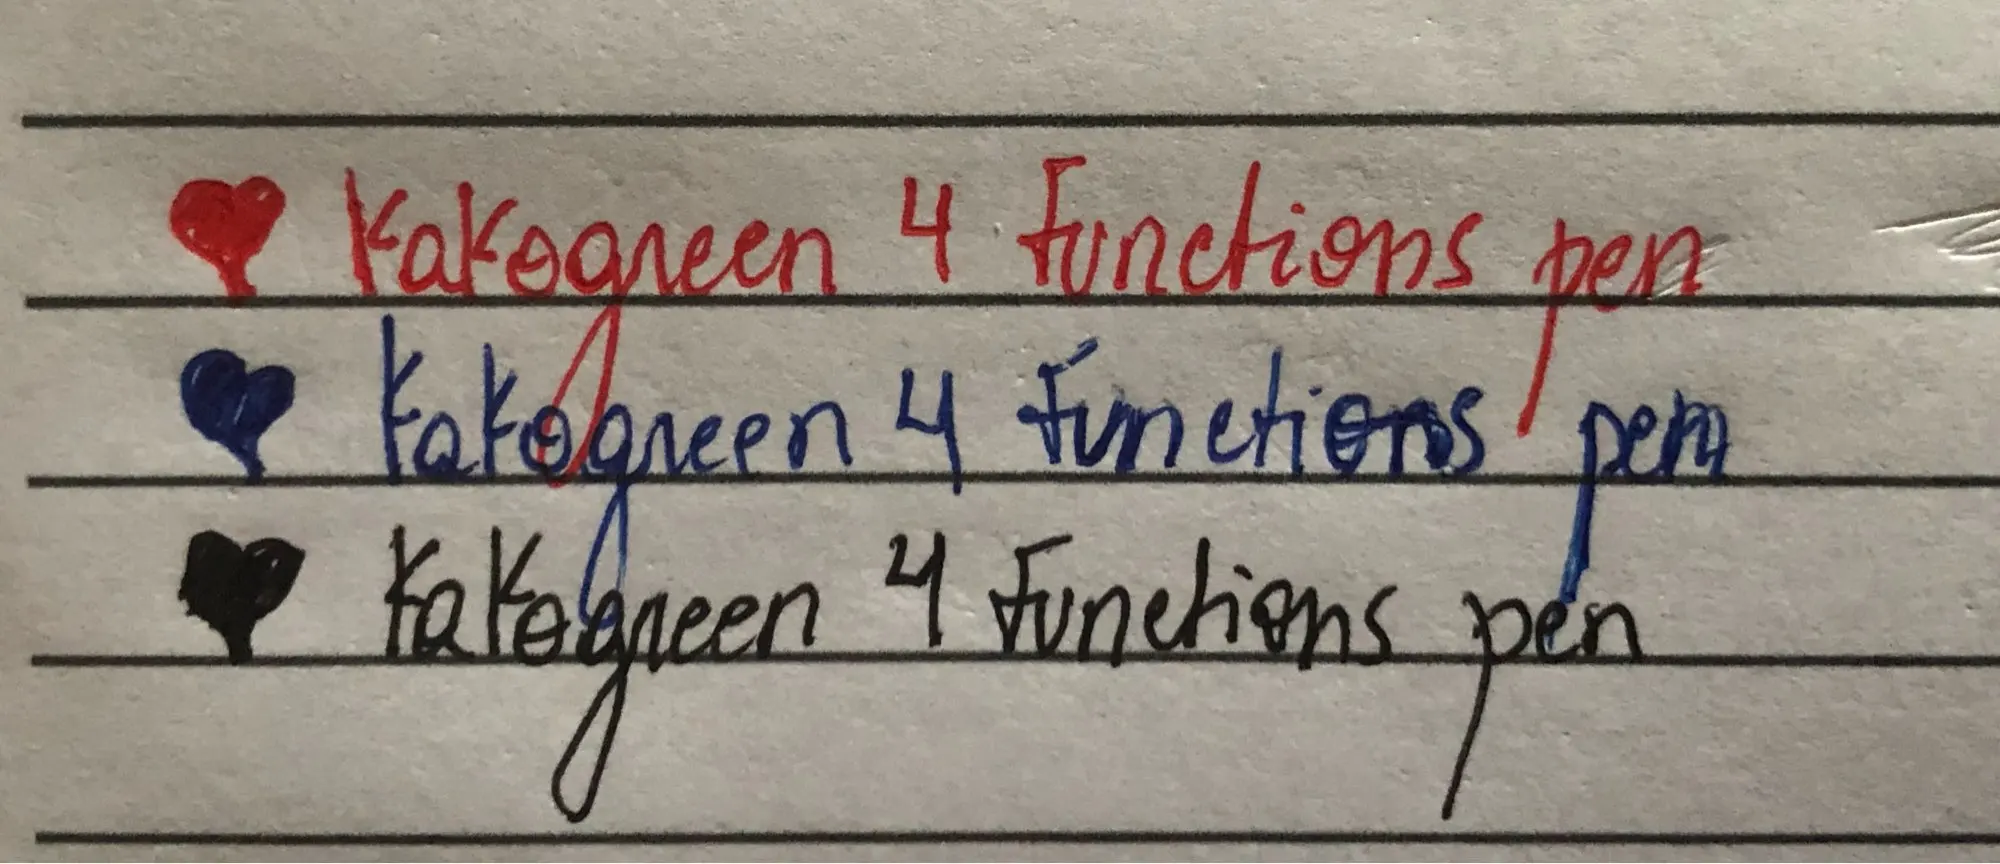 ♥ Kakogreen 4 functions pen
♥ Kakogreen 4 functions pen
♥ Kakogreen 4 functions pen